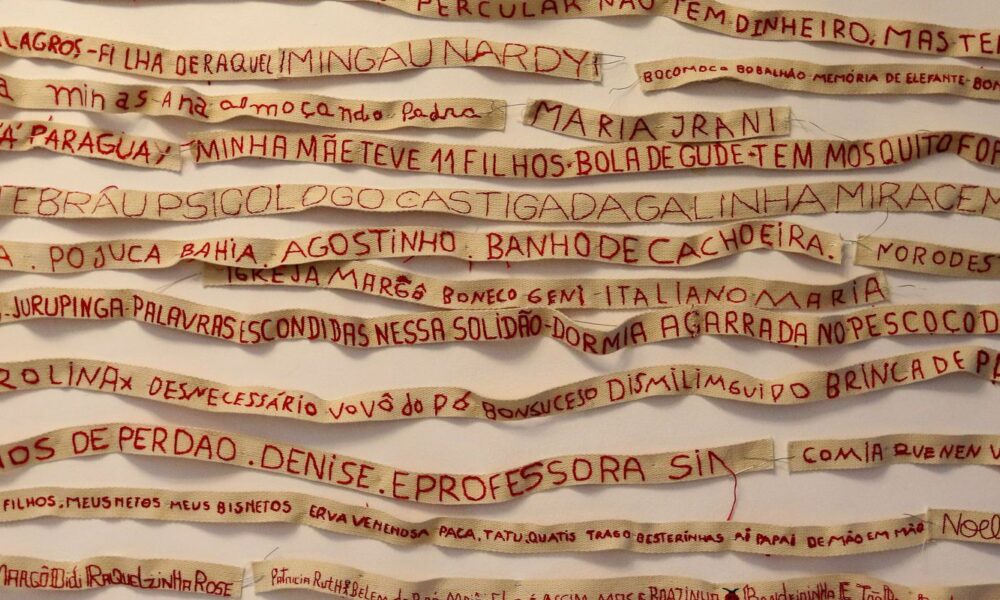 PERCULAR NÃO TEM DINHEIRO, MAS TE
LAGROS-FILHA DE RAQUEL MINGAU NARDY
BOCOMOCO BOBALHÃO MEMÓRIA DE ELEFANTE-BO
minas-Ana almoçando-Pedro
MARIA IRANI
PARAGUAY-MINHA MÃE TEVE 11 FILHOS-BOLA DE GUDE-TEM MOSQUITO FO
EBRÂU PSICÓLOGO CASTIGADA GALINHA MIRACEM
A. POJUCA BAHIA. AGOSTINHO. BANHO DE CACHOEIRA.
NORODEST
IGREJA MARGÔ BONECO GENI-ITALIANO MARIA
JURUPINGA-PALAVRAS ESCONDIDAS NESSA SOLIDÃO-DORMIA AGARRADA NO PESCOÇO D
ROLINA* DESNECESSÁRIO VOVÔ do PÓ BONSUCESO DISMILIMGUIDO BRINCA DE P
OS DE PERDAO. DENISE. EPROFESSORA SIM
COMIA QUE NEN
FILHOS. MEUS NETOS MEUS BISNETOS ERVA VENENOSA PACA, TATU, QUATIS TRAGO BESTERINHAS PI PAPAI DE MÃO EM MÃO
Noel
MARGÔ Didi RAQUELZINHA ROSE
Patricia Ruth BELEM